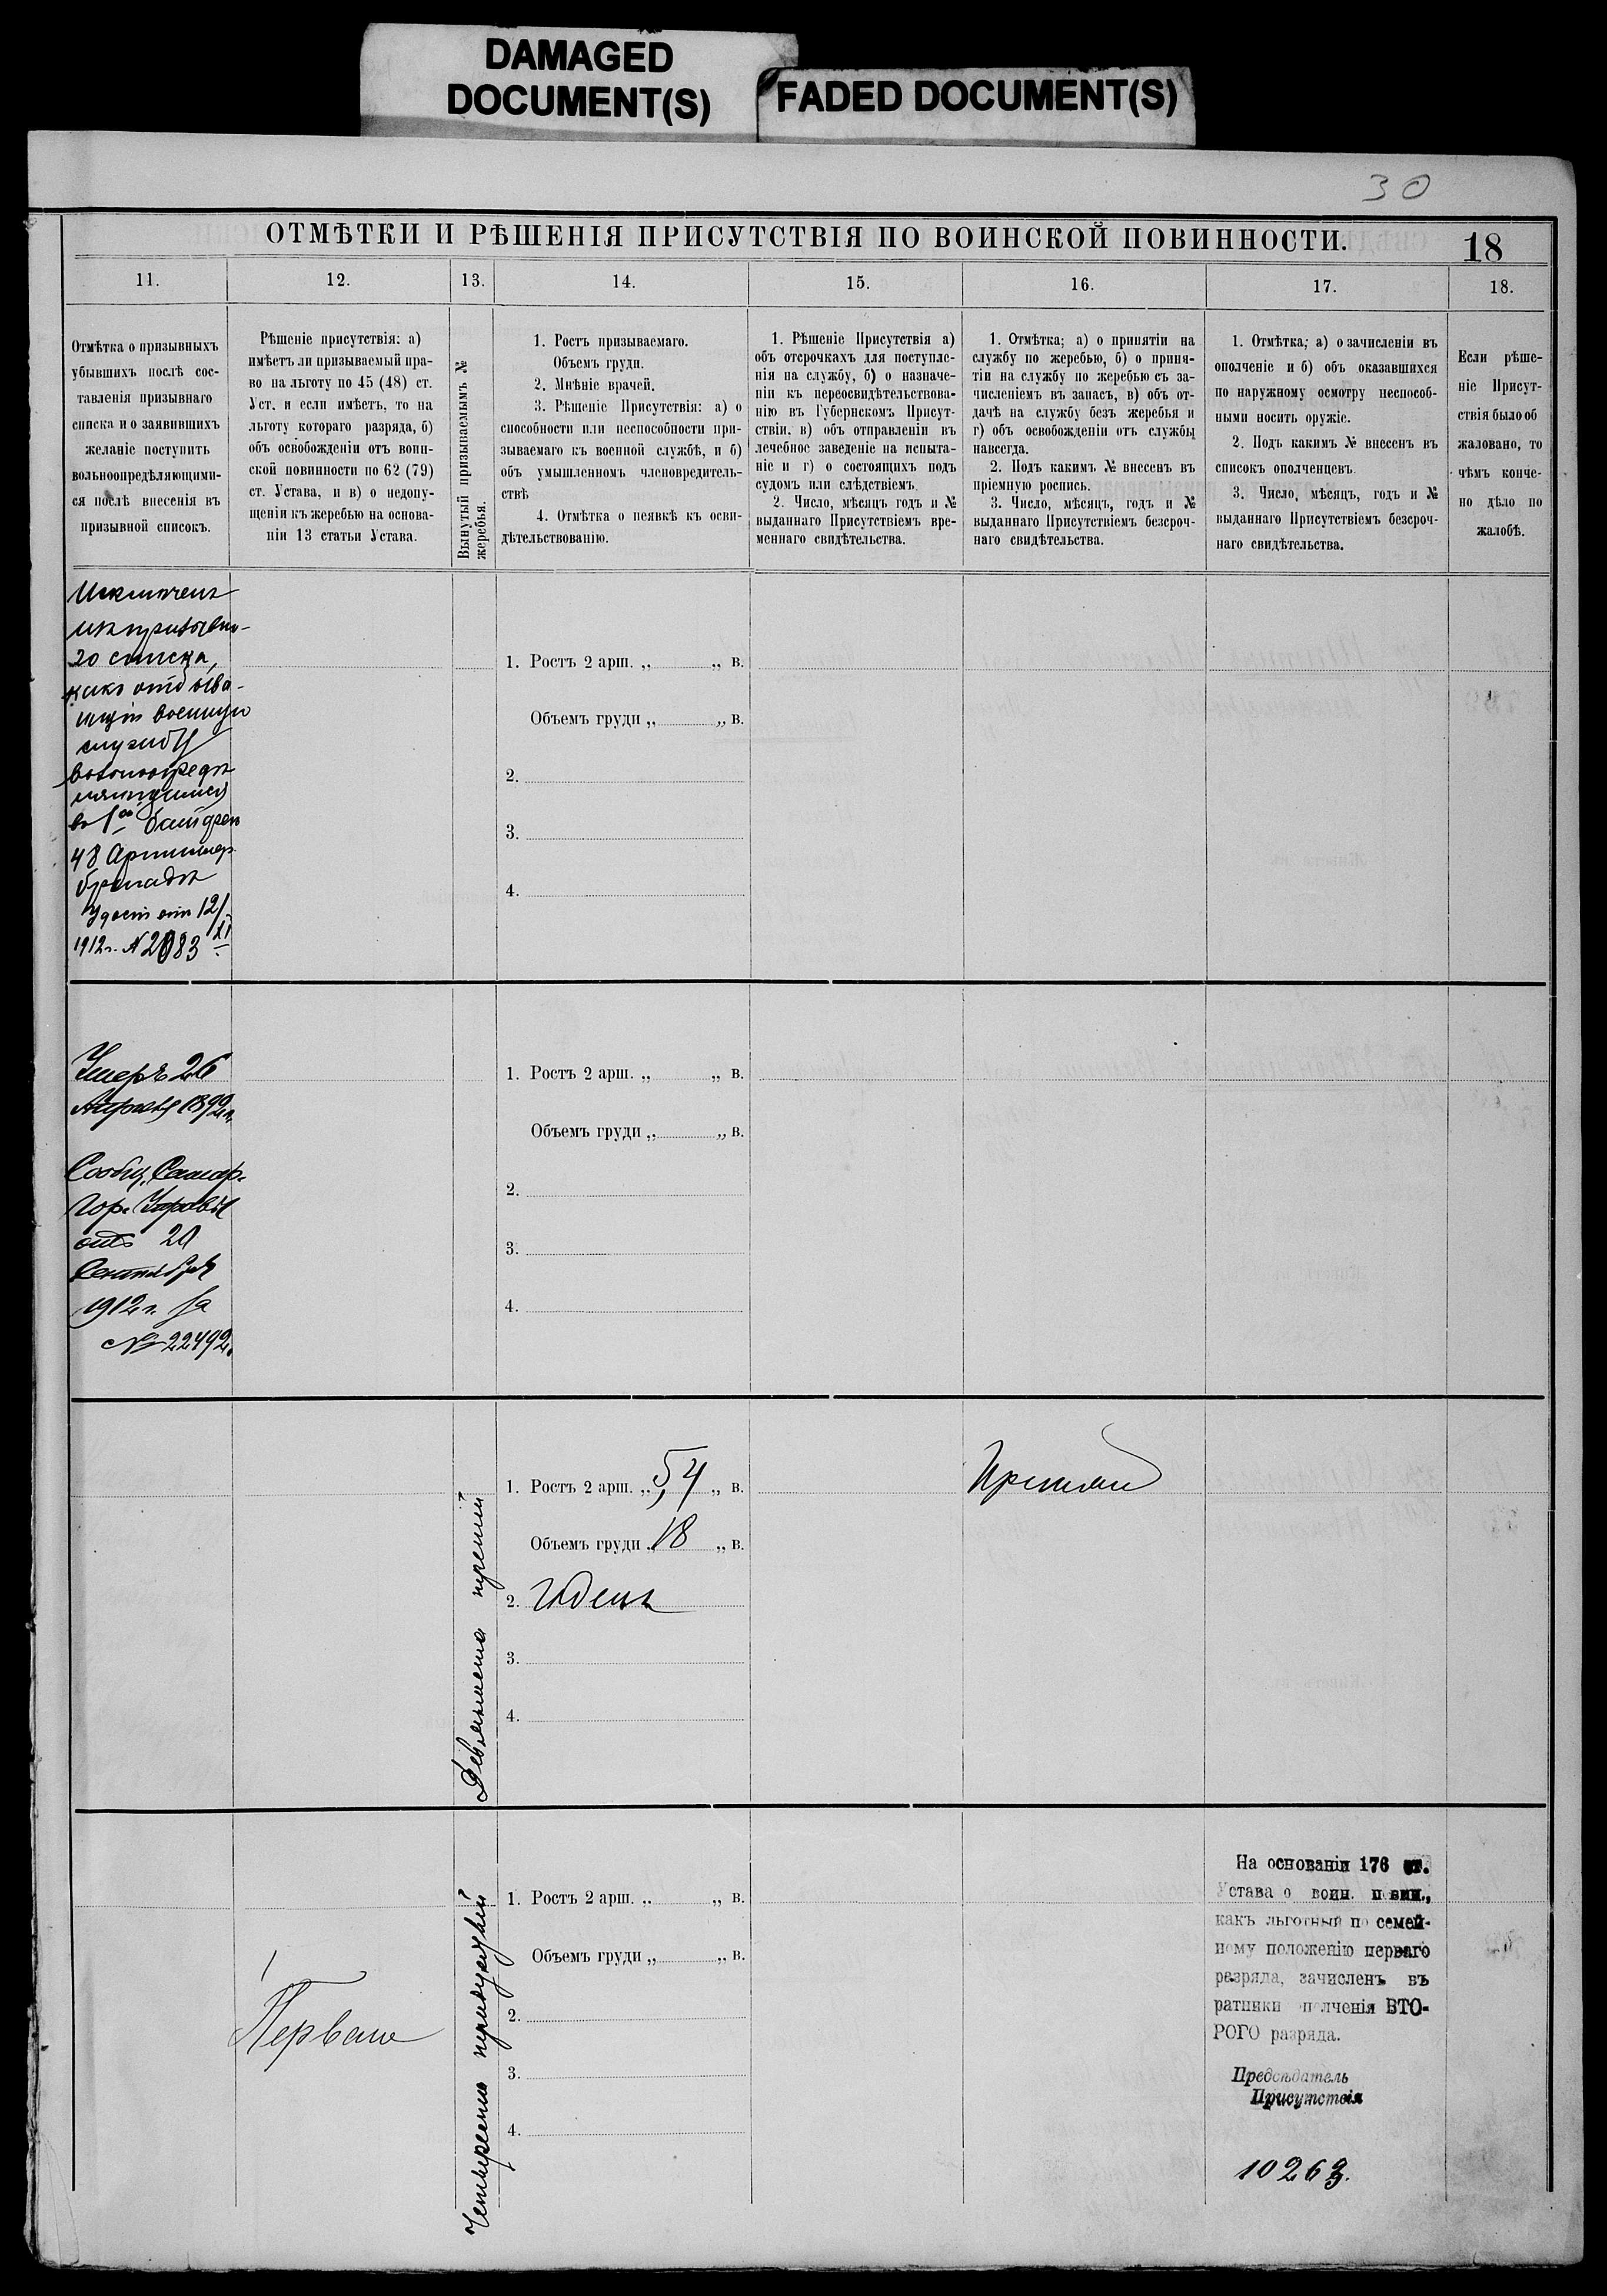 DAMAGED
DOCUMENT(S)
FADED DOCUMENT(S)
30
ОТМѢТКИ И РѢШЕНІЯ ПРИСУТСТВІЯ ПО ВОИНСКОЙ ПОВИННОСТИ.
18
11.
12.
13.
14.
15.
16.
17.
18.
Отмѣтка о призывныхъ
убывшихъ послѣ сос-
тавленія призывнаго
списка и о заявившихъ
желаніе поступить
вольноопредѣляющими-
ся послѣ внесенія въ
призывной списокъ.
Рѣшеніе присутствія: а)
имѣетъ ли призываемый пра-
во на льготу по 45 (48) ст.
Уст. и если имѣетъ, то на
льготу котораго разряда, б)
объ освобожденіи отъ воин-
ской повинности по 62 (79)
ст. Устава, и в) о недопу-
щеніи къ жеребью на основа-
ніи 13 статьи Устава.
Вынутый призываемымъ №
жеребья.
1. Ростъ призываемаго.
Объемъ груди.
2. Мнѣніе врачей.
3. Рѣшеніе Присутствія: а) о
способности или неспособности при-
зываемаго къ военной службѣ, и б)
объ умышленномъ членовредитель-
ствѣ
4. Отмѣтка о неявкѣ къ осви-
дѣтельствованію.
1. Рѣшеніе Присутствія а)
объ отсрочкахъ для поступле-
нія на службу, б) о назначе-
ніи къ переосвидѣтельствова-
нію въ Губернскомъ Присут-
ствіи. в) объ отправленіи въ
лечебное заведеніе на испыта-
ніе и г) о состоящихъ подъ
судомъ или слѣдствіемъ.
2. Число, мѣсяцъ годъ и №
выданнаго Присутствіемъ вре-
меннаго свидѣтельства.
1. Отмѣтка; а) о принятіи на
службу по жеребью, б) о приня-
тіи на службу по жеребью съ за-
численіемъ въ запасъ, в) объ от-
дачѣ на службу безъ жеребья и
г) объ освобожденіи отъ службы
навсегда.
2. Подъ какимъ № внесенъ въ
пріемную роспись.
3. Число, мѣсяцъ, годъ и №
выданнаго Присутствіемъ безсроч-
наго свидѣтельства.
1. Отмѣтка; а) о зачисленіи въ
ополченіе и б) объ оказавшихся
по наружному осмотру неспособ-
ными носить оружіе.
2. Подъ какимъ № внесенъ въ
списокъ ополченцевъ.
3. Число, мѣсяцъ, годъ и №
выданнаго Присутствіемъ безсроч-
наго свидѣтельства.
Если рѣше-
ніе Присут-
ствія было об
жаловано, то
чѣмъ конче-
но дѣло по
жалобѣ.
Исключенъ
изъ призывна-
го списка,
какъ отбыва-
ющій военную
службу
вольноопредѣ
ляющимся
въ 1ой батареѣ
48 Артиллер.
бригадѣ
Удост отъ 12/XI
1912г. № 2083
1. Ростъ 2 арш. „ „ в.
Объемъ груди „ „ в.
2.
3.
4.
Умеръ 26
Апрѣля 1892г.
Сообщ. Самар.
Гор. Управы
отъ 20
Сентября
1912г. за
№ 22492.
1. Ростъ 2 арш. „ „ в.
Объемъ груди „ „ в.
2.
3.
4.
Девяносто третій
1. Ростъ 2 арш. „ 5,4 „ в.
Объемъ груди „ 18 „ в.
2. Годенъ
3.
4.
Принятъ
Первого
Четыреста тридцатый
1. Ростъ 2 арш. „ „ в.
Объемъ груди „ „ в.
2.
3.
4.
На основаніи 176 ст.
Устава о воин. повин.,
какъ льготный по семей-
ному положенію перваго
разряда, зачисленъ въ
ратники ополченія ВТО-
РОГО разряда.
Предсѣдатель
Присутствія
10263.